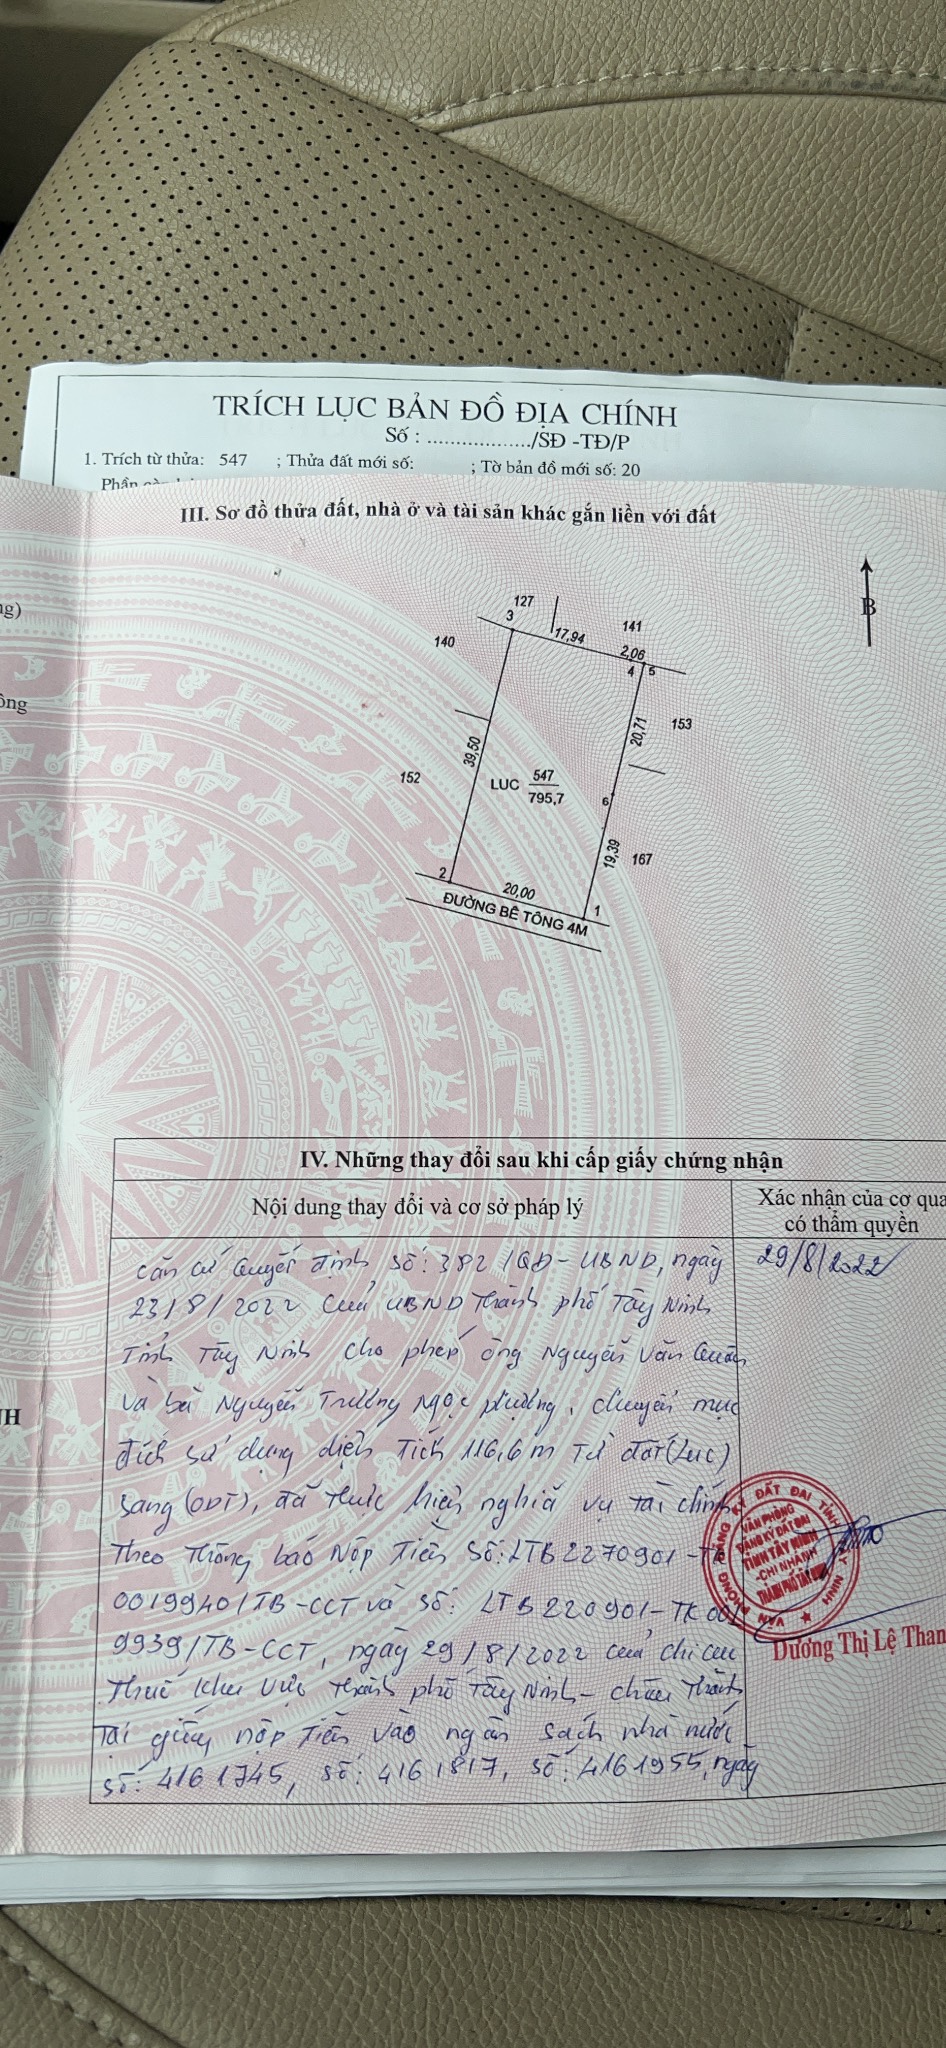 TRÍCH LỤC BẢN ĐỒ ĐỊA CHÍNH
Số : .................../SĐ -TĐ/P
1. Trích từ thửa: 547 ; Thửa đất mới số: ; Tờ bản đồ mới số: 20
Phần
III. Sơ đồ thửa đất, nhà ở và tài sản khác gắn liền với đất
ng)
ông
B
127
3
17,94
141
2,06
4 5
140
20,71
153
39,50
152
LUC 547
795,7
6
19,39
167
2
20,00
1
ĐƯỜNG BÊ TÔNG 4M
IV. Những thay đổi sau khi cấp giấy chứng nhận
Nội dung thay đổi và cơ sở pháp lý
Xác nhận của cơ qua
có thẩm quyền
Căn cứ Quyết định số: 382/QĐ-UBND, ngày
29/8/2022
23/8/2022 của UBND Thành phố Tây Ninh
Tỉnh Tây Ninh cho phép ông Nguyễn Văn Quân
và bà Nguyễn Trương Ngọc Phượng, chuyển mục
đích sử dụng diện tích 116,6m từ đất (Luc)
sang (ODT), đã thực hiện nghĩa vụ tài chính
Theo Thông báo Nộp Tiền Số: LTB2270901-TK
0019940/TB-CCT và số: LTB220901-TK001
9939/TB-CCT, ngày 29/8/2022 của chi cục
Thuế khu vực thành phố Tây Ninh - châu Thành
Tại giấy nộp tiền vào ngân sách nhà nước
số: 4161745, số: 4161817, số: 4161955, ngày
NH
VĂN PHÒNG ĐĂNG KÝ ĐẤT ĐAI TỈNH TÂY NINH
VĂN PHÒNG
ĐĂNG KÝ ĐẤT ĐAI
TỈNH TÂY NINH
-CHI NHÁNH
THÀNH PHỐ TÂY
Dương Thị Lệ Than